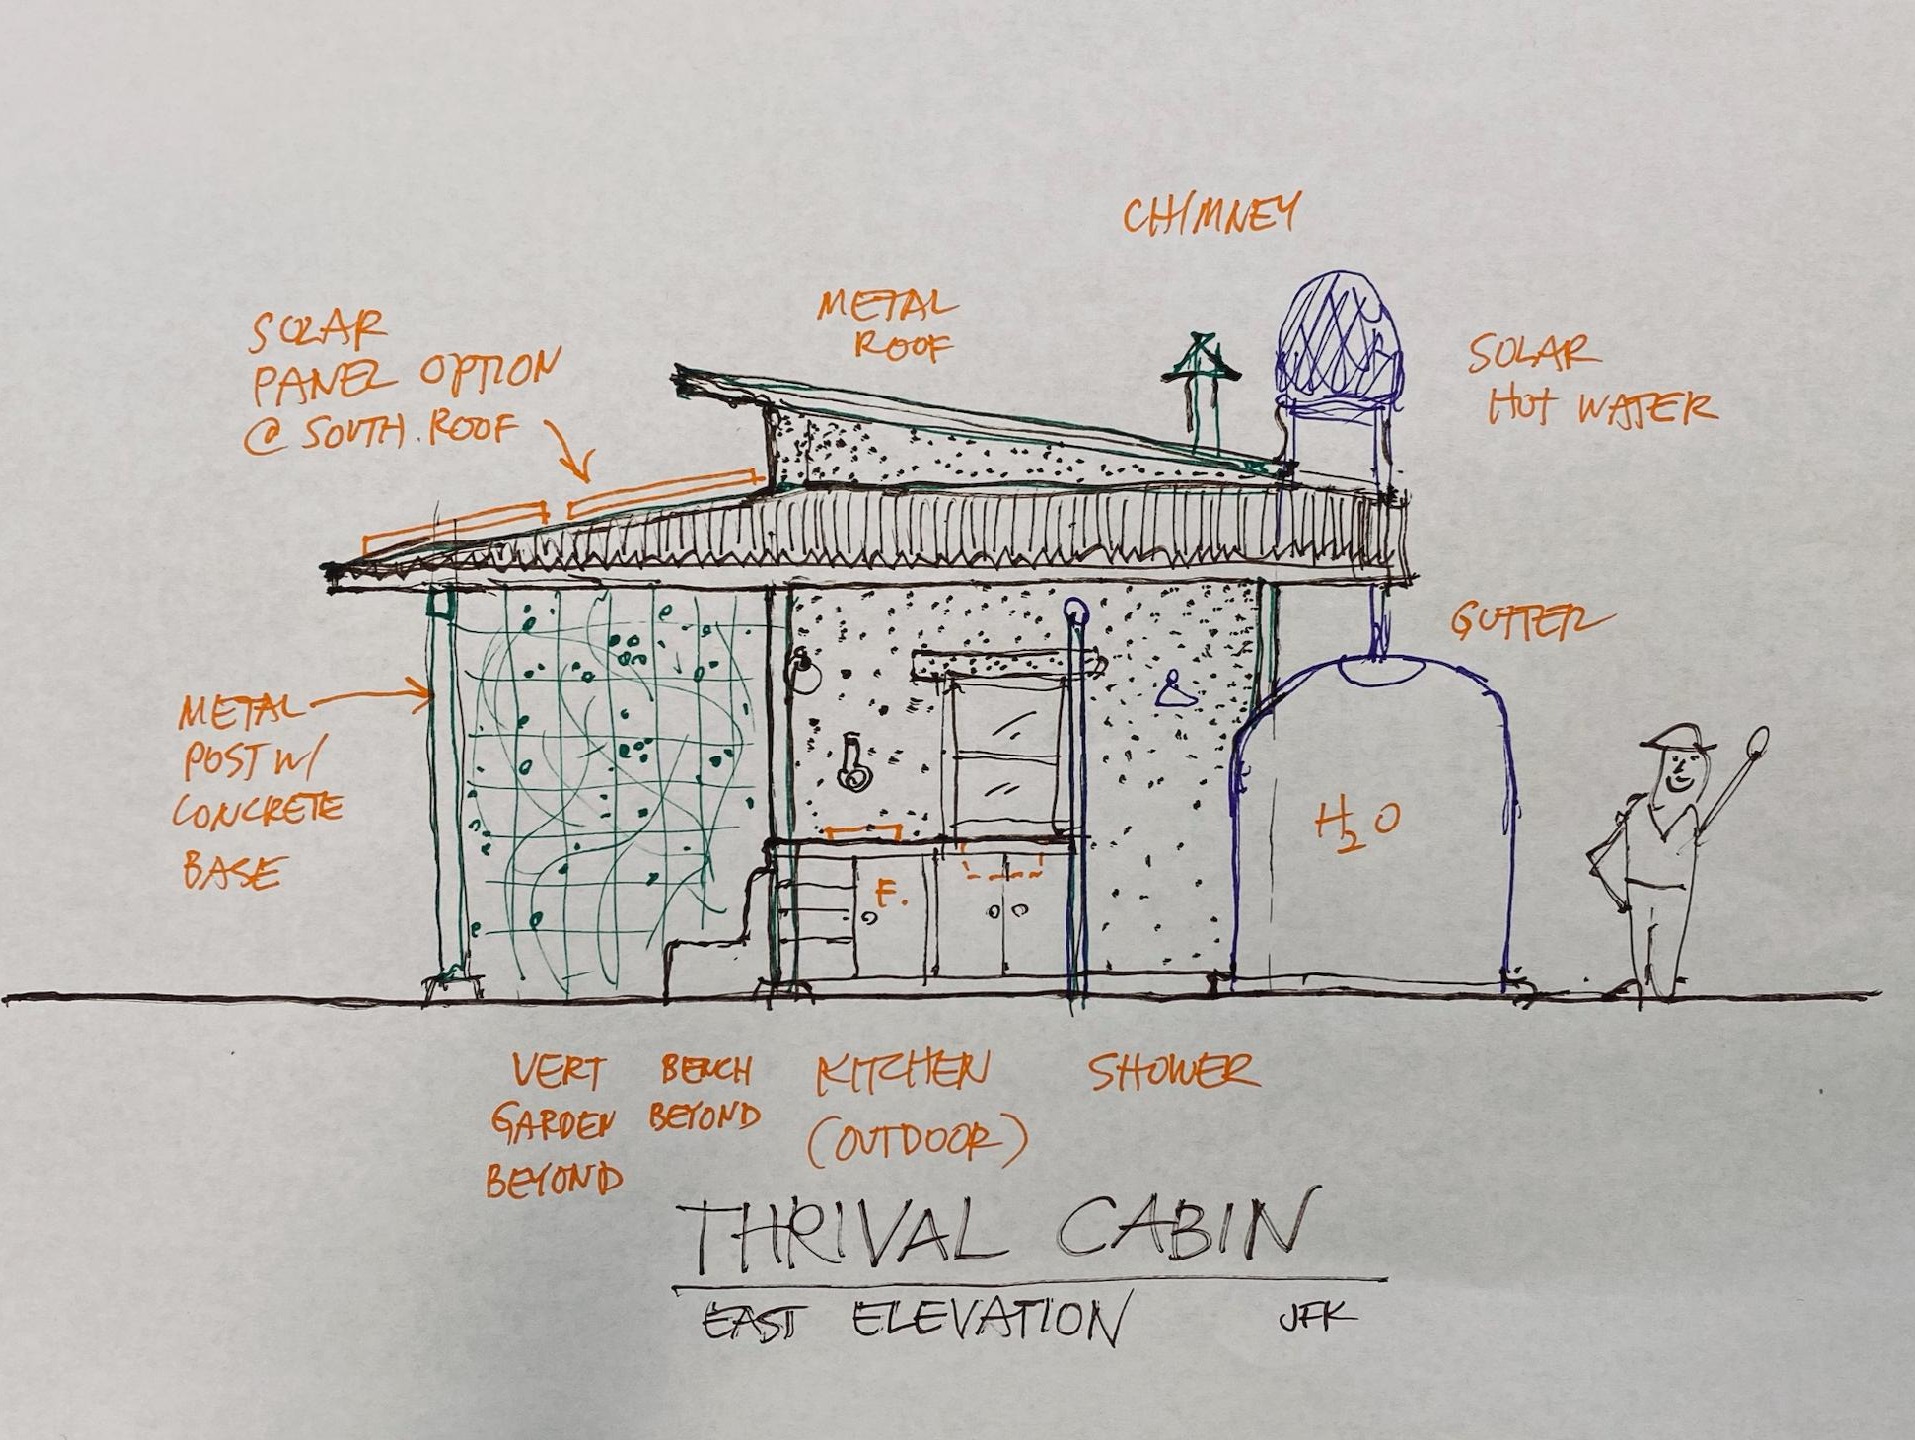 CHIMNEY
METAL
ROOF
SOLAR
PANEL OPTION
@ SOUTH. ROOF
SOLAR
HOT WATER
GUTTER
METAL
POST W/
CONCRETE
BASE
H2O
F.
VERT
GARDEN
BEYOND
BENCH
BEYOND
KITCHEN
(OUTDOOR)
SHOWER
THRIVAL CABIN
EAST ELEVATION
JFK